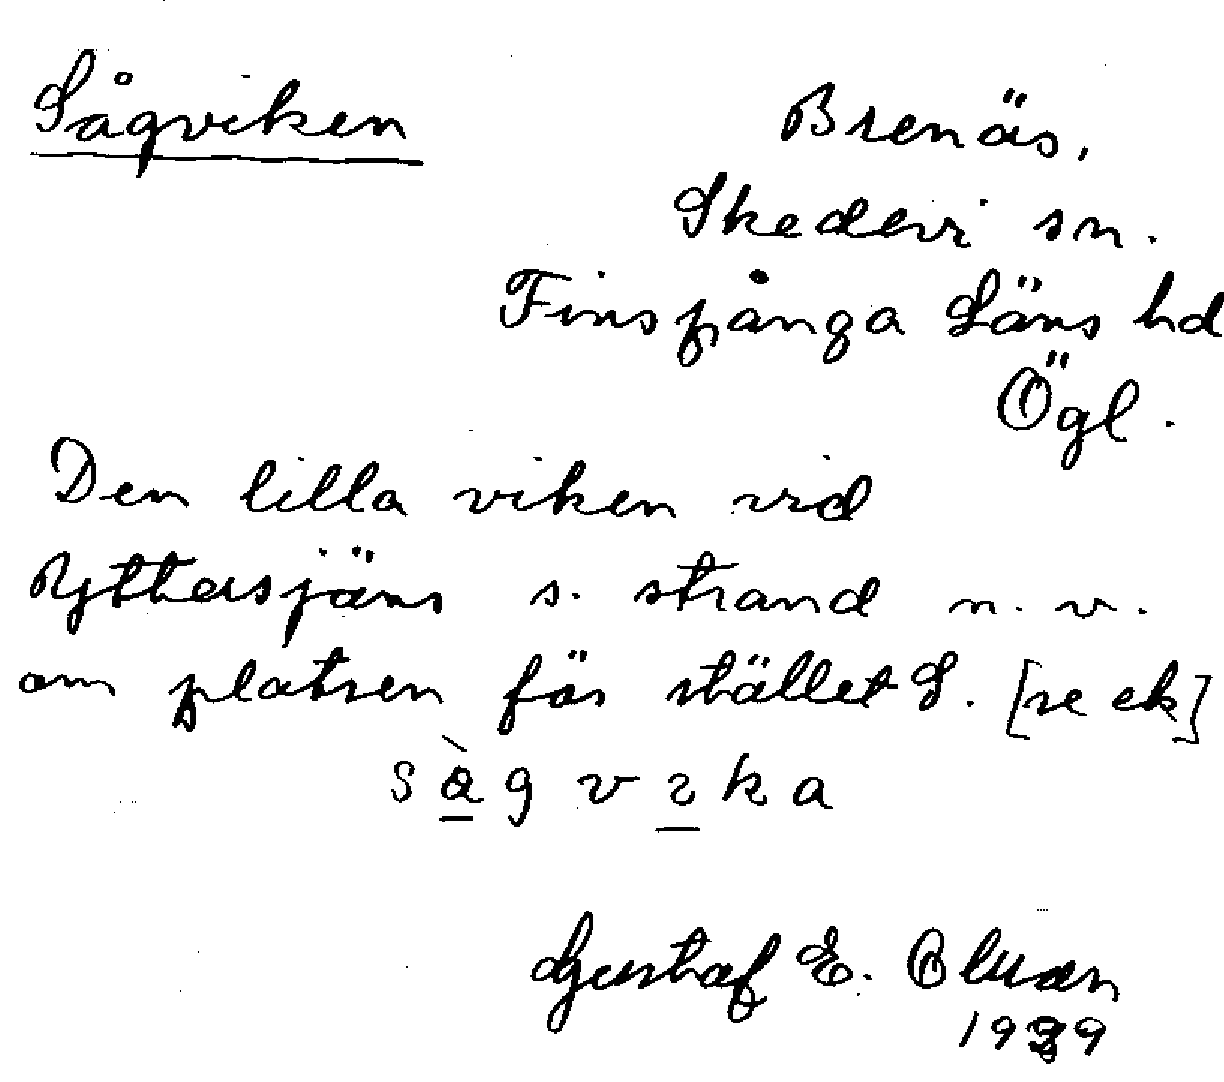 Sågviken
Brenäs,
Skedevi sn.
Finspånga Läns hd
Ögl.
Den lilla viken vid
Ryttersjäns s. strand n. v.
om platsen för stället S. [se ek]
Gustaf E.